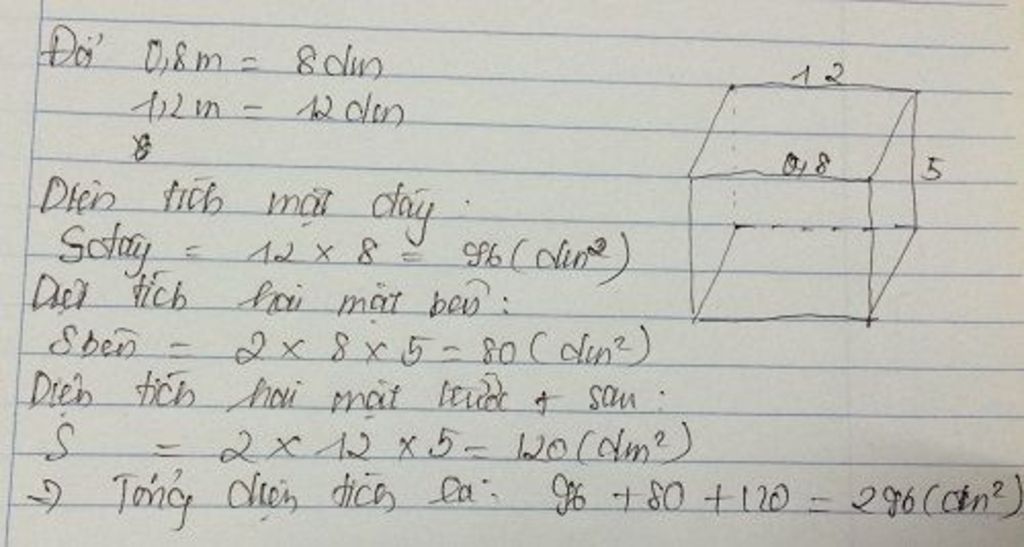 Đổi 0,8m = 8dm
1,2m = 12dm
8
Diện tích mặt đáy:
Sđáy = 12 × 8 = 96 (dm²)
Diện tích hai mặt bên:
Sbên = 2 × 8 × 5 = 80 (dm²)
Diện tích hai mặt trước + sau:
S = 2 × 12 × 5 = 120 (dm²)
=> Tổng diện tích là: 96 + 80 + 120 = 296 (dm²)
12
0,8
5